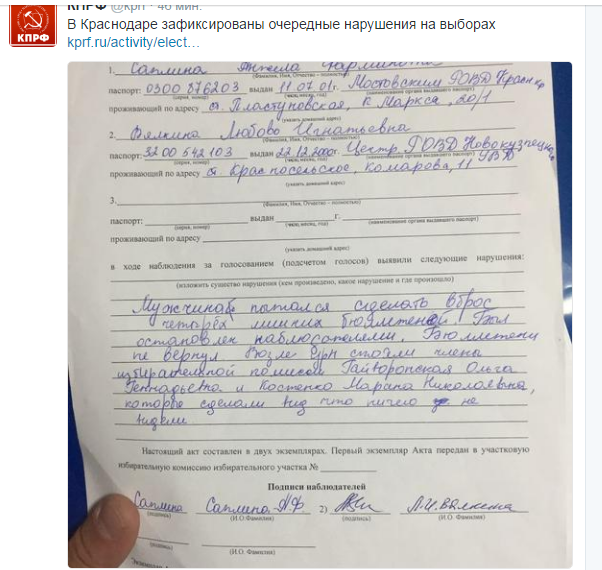 КПРФ @kprf · 46 мин.
В Краснодаре зафиксированы очередные нарушения на выборах
kprf.ru/activity/elect…
КПРФ
1. Саплина Анжела
(Фамилия, Имя, Отчество – полностью)
паспорт: 0300 876203 выдан 11.07.01г. Мостовским РОВД Красн кр
(серия, номер) (число, месяц, год) (наименование органа выдавшего паспорт)
проживающий по адресу ст. Пластуновская, К. Маркса, 20/1
(указать домашний адрес)
2. Вялкина Любовь Игнатьевна
(Фамилия, Имя, Отчество – полностью)
паспорт: 3200 542103 выдан 22.12.2000г. Центр. РОВД Новокузнецка УВД
(серия, номер) (число, месяц, год) (наименование органа выдавшего паспорт)
проживающий по адресу ст Красносельское, Комарова, 11
(указать домашний адрес)
3.
(Фамилия, Имя, Отчество – полностью)
паспорт: выдан г.
(серия, номер) (число, месяц, год) (наименование органа выдавшего паспорт)
проживающий по адресу
(указать домашний адрес)
в ходе наблюдения за голосованием (подсчетом голосов) выявили следующие нарушения:
(изложить существо нарушения (кем произведено, какое нарушение и где произошло)
Мужчина пытался сделать вброс
четырёх лишних бюллетеней Был
остановлен наблюдателями. Бюллетени
не вернул Возле урн стояли члены
избирательной комиссии Гайворонская Ольга
Геннадьевна и Костенко Марина Николаевна,
которые сделали вид что ничего не
видели
Настоящий акт составлен в двух экземплярах. Первый экземпляр Акта передан в участковую
избирательную комиссию избирательного участка №
Подписи наблюдателей
Саплина Саплина А.Ф. 2) Л.И. Вялкина
(подпись) (И.О.Фамилия) (подпись) (И.О.Фамилия)
(подпись) (И.О. Фамилия)